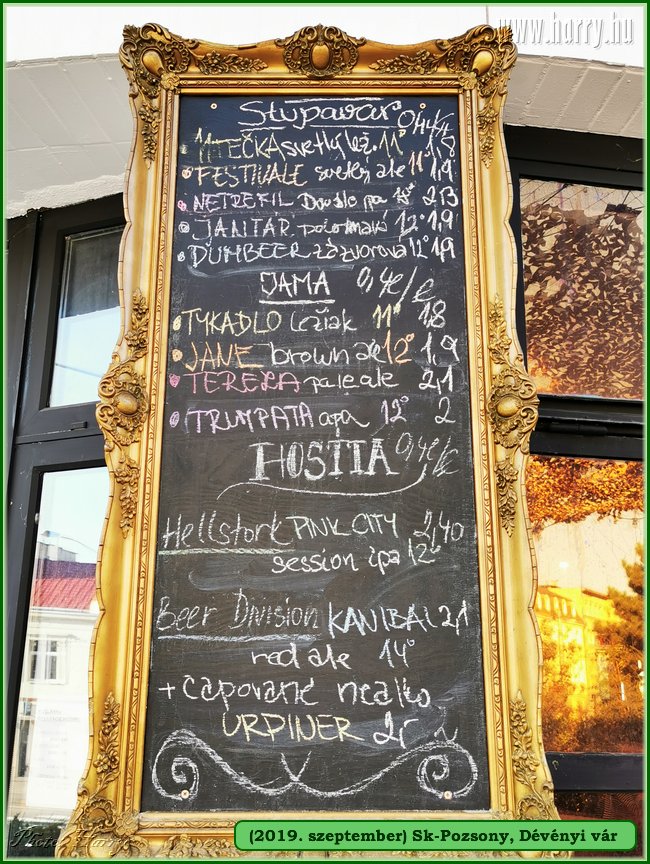 www.hurry.hu
Stupavar 0,4l/€
11TEČKA svetlý lež. 11° 1,8
FESTIVALE svetlý ale 11° 1,9
NETREFIL Double ipa 18° 2,3
JANTÁR polotmavý 12° 1,9
ĎUMBEER zázvorová 12° 1,9
JAMA 0,4l/€
TYKADLO ležiak 11° 1,8
JANE brown ale 12° 1,9
TEREZA pale ale 2,1
TRUMPATA apa 12° 2
HOSTIA 0,4l/€
Hellstork PINK CITY 2,40
session ipa 12°
Beer Division KANIBAL 2,1
red ale 14°
+ čapované nealko
URPINER
(2019. szeptember) Sk-Pozsony, Dévényi vár